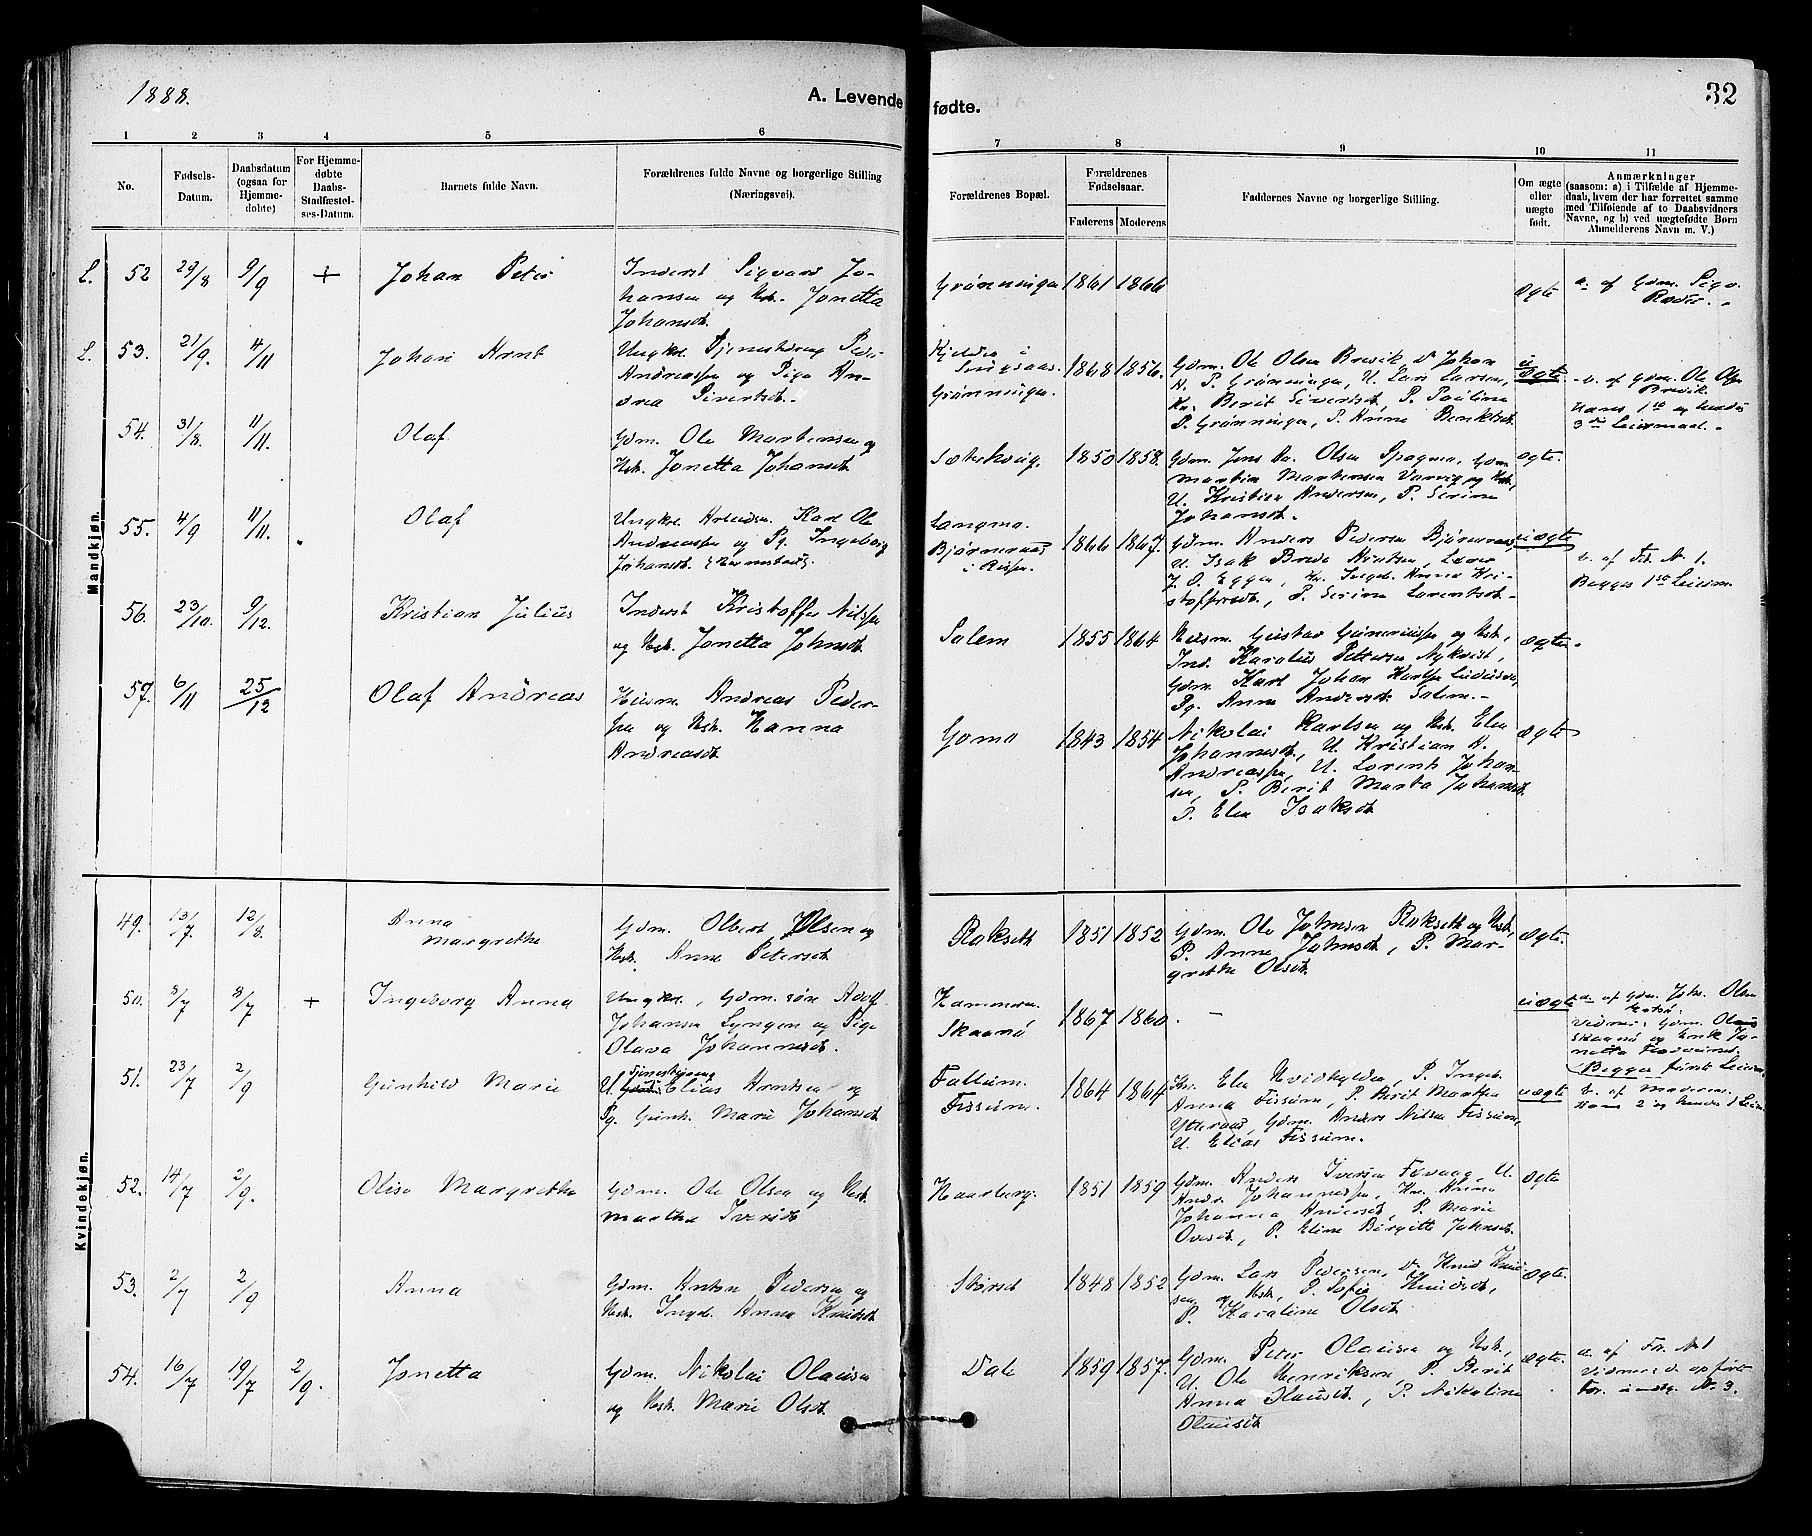 1888.
A. Levende fødte.
32
1 2 3 4 5 6 7 8 9 10 11
No.
Fødsels-
Datum.
Daabsdatum
(ogsaa for
Hjemme-
døbte)
For Hjemme-
døbte
Daabs-
Stadfæstel-
ses-Datum.
Barnets fulde Navn.
Forældrenes fulde Navne og borgerlige Stilling
(Næringsvei).
Forældrenes Bopæl.
Forældrenes
Fødselsaar.
Faderens Moderens
Faddernes Navne og borgerlige Stilling.
Om ægte
eller
uægte
født.
Anmærkninger
(saasom: a) i Tilfælde af Hjemme-
daab, hvem der har forrettet samme
med Tilføiende af to Daabsvidners
Navne, og b) ved uægtefødte Børn
Anmelderens Navn m. V.)
Mandkjøn.
L. 52 29/8 9/9 + Johan Peter
Inderst Sigvard Jo-
hansen og Hst. Jonetta
Johansdt.
Grønningen 1861 1866
ægte
a. af Gdm. Sigv.
L. 53. 21/9. 4/11 Johan Arnt
Ungkl. Tjenestedreng Peder
Andreassen og Pige An-
drea Sivertsdt.
Grønningen.
1868 1856.
Gdm. Ole Olsen Brevik, Johan
A. P. Grønningen, U. Lars Larsen,
Kv. Berit Sivertsdt. P. Paulina
P. Grønningen, P. Anne Benktsdt.
uægte.
b. af Gdm. Ole Olsen
Brevik.
Hans 1ste og hendes
3die Leiermaal.
54. 31/8. 11/11 Olaf.
Gdm. Ole Martensen og
Hst. Jonetta Johansdt.
Sæterhaug. 1850 1858.
Gdm. Jens Olsen
Martin Martensen og Hst.,
U. Kristian Andersen, P. Serine
Johansdt.
ægte.
55. 4/9 11/11. Olaf
Ungkl. Arbeidsm. Karl Ole
Andreassen og Pg. Ingeborg
Johansdt.
Langmo.
Bjørneraas
i Rissen.
1866 1867.
Gdm. Anders Pedersen Bjørneraas,
U. Isak Arntsen, Lærer
J. O. Eggen, Kv. Ingeb. Anna Kri-
stoffersdt., P. Serine Lorentsdt.
uægte
b. af Fd. N. 1.
Begges 1ste Leierm.
56. 23/10. 9/12. Kristian Julius
Inderst Kristoffer Nilssen
og Hst. Jonetta Johnsdt.
Solem 1855 1864
Husm. Gustav og Hst.,
Ind. Karolius Pettersen Nykvist,
Gdm. Karl Johan
Pg. Anna Andersdt. Solem.
ægte.
57. 6/11 25/12 Olaf Andreas
Husm. Andreas Peder-
sen og Hst. Hanna
Andreasdt.
Gomo 1843 1854
Nikolai Karlsen og Hst. Elen
Johannesdt., U. Kristian A.
Andreassen, U. Lorents Johan-
sen, P. Berit Marta Johansdt.
P. Elen Isaksdt.
ægte
Kvindekjøn.
49. 13/7. 12/8. Anna
Margrethe
Gdm. Olbert Olsen og
Hst. Anne Petersdt.
Rokseth 1851 1852
Gdm. Ole Johnsen Rokseth og Hst.,
P. Anne Johnsdt., P. Mar-
grethe Olsdt.
ægte.
50. 8/7 8/7 + Ingeborg Anna
Ungkl., Gdm. søn Adolf
Johansen Lyngen og Pige
Olava Johannesdt.
Skaanø 1867 1860. -
uægte
a. af Gdm. Johs. Olsen
Vidner: Gdm.
Skaanø og Enk. Jo-
netta
Begges første Leierm.
51. 23/7 2/9 Gunhild Marie
U. Tjenestedreng Elias Arntsen og
Pg. Gunh. Marie Johansdt.
Fallium.
Fissum.
1864 1864
Kv. Elen Hvidkylden, P. Ingeb.
Anna Fissum, P. Berit Marthea
Ytteraas, Gdm. Anders Nilsen Fissum,
U. Elias Fissum.
uægte
b. af Moderen.
Hans 2 og hendes 1 Leierm.
52. 14/7 2/9. Olise Margrethe
Gdm. Ole Olsen og Hst.
Martha Iversdt.
Haarberg. 1851 1859
Gdm. Anders Iversen Fevaag, U.
Andr. Johannessen, Kv. Anna
Johanna Andersdt., P. Marie
Ovesdt., P. Eline Birgitte Johnsdt.
ægte
53. 2/7 2/9 Anna
Gdm. Anton Pedersen og
Hst. Ingeb. Anna Knudsdt.
Størset 1848 1852
Gdm. Lars Pedersen, Knud Knud-
sen og Hst., P. Sofie Knudsdt.,
P. Karoline Olsdt.
ægte.
54. 16/7 19/7 2/9. Jonetta
Gdm. Nikolai Olausen
og Hst. Marie Olsdt.
Dale 1859 1857.
Gdm. Peter Olausen og Hst.,
U. Ole Henriksen, P. Berit
Anna Olausdt., P. Nikoline
Olausdt.
ægte.
a. af Fd. N. 1
Vidner: de opførte
For. undtg. N. 3.